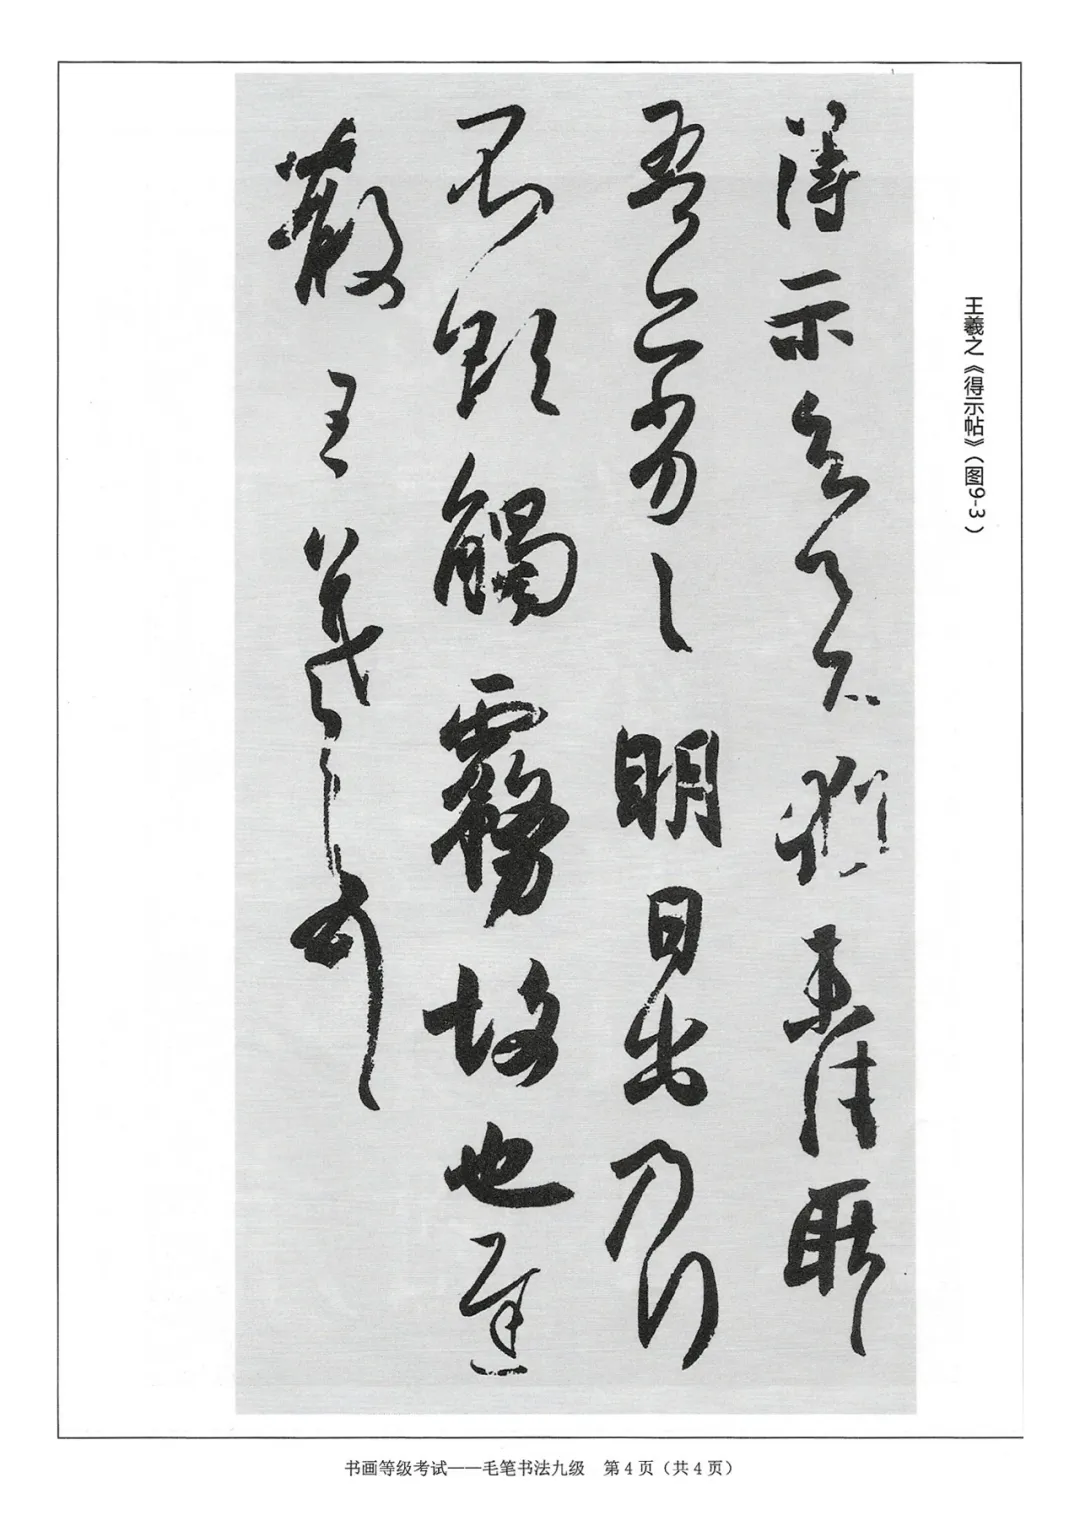 王羲之《得示帖》（图9-3）
得示知足下猶未佳耿耿
吾亦劣劣明日出乃行
不欲觸霧故也遲
散王羲之頓首
书画等级考试——毛笔书法九级　第4页（共4页）